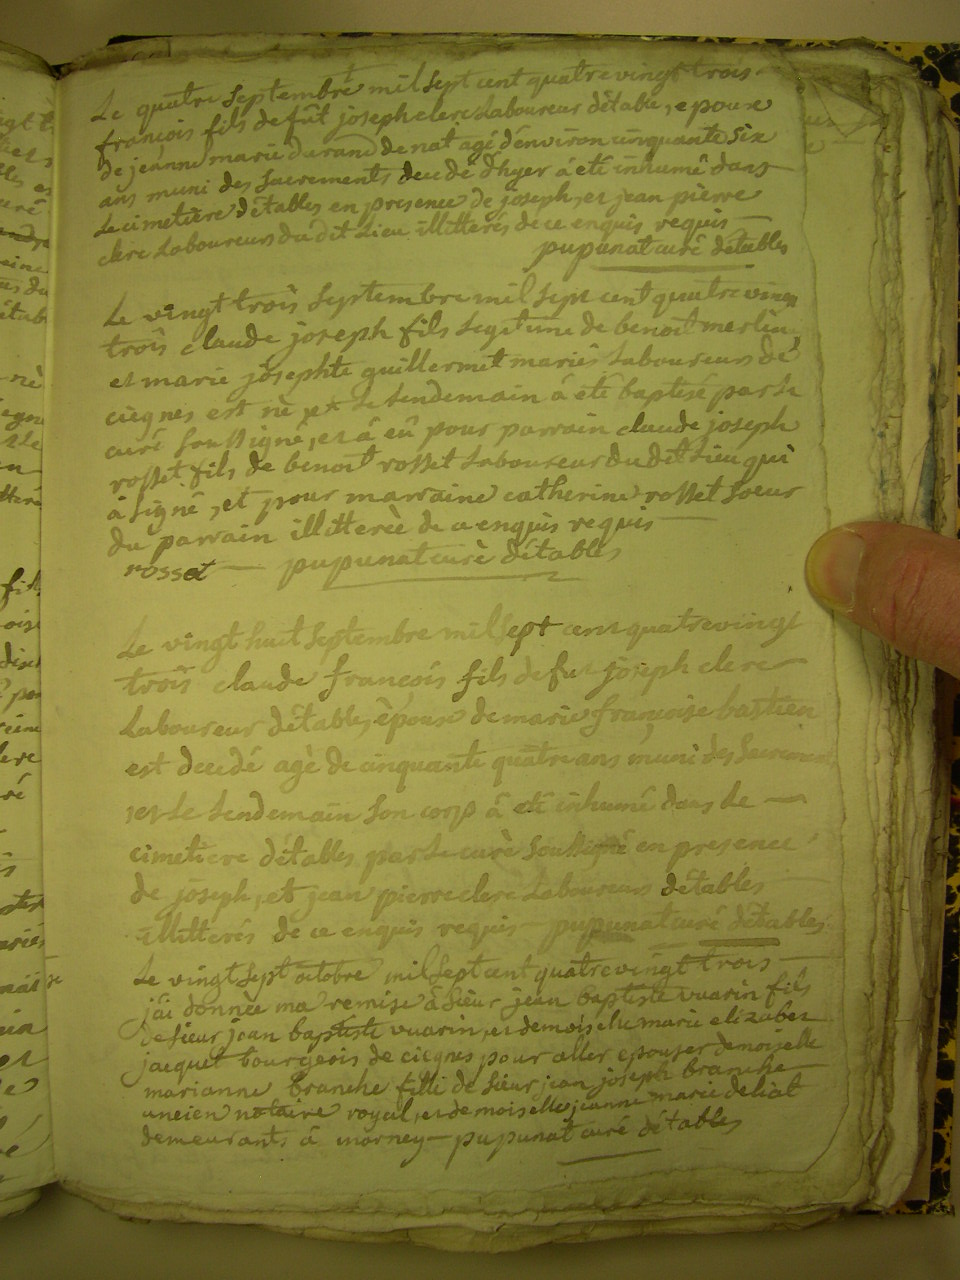 Le quatre septembre mil sept cent quatre vingt trois
françois fils de fût joseph clerc Laboureur détables, epoux
de jeanne marie durand de nat agé denviron cinquante six
ans muni des sacrements decedé d'hyer á eté inhumé dans
Le cimetière détables en presence de joseph, et jean pierre
clerc Laboureurs du dit Lieu illitterés de ce enquis requis
pupunat curé détables
Le vingt trois septembre mil sept cent quatre vingt
trois claude joseph fils Legitime de benoit merlin
et marie josephte guillermet mariés Laboureurs de
ciegnes est né, et Le Lendemain á eté baptisé par Le
curé soussigné, et á eû pour parrain claude joseph
rosset fils de benoit rosset Laboureur du dit Lieu qui
á signé, et pour marraine catherine rosset soeur
du parrain illitterée de ce enquis requis
rosset pupunat curè détables
Le vingt huit septembre mil sept cent quatre vingt
trois claude françois fils de fut joseph clerc
Laboureur détables, èpoux de marie françoise bastien
est decedé agè de cinquante quatre ans muni des sacrements
et Le Lendemain son corp á eté inhumé dans Le
cimetiere détables par Le curè soussigné en presence
de joseph, et jean pierre clerc Laboureurs détables
illitterés de ce enquis requis pupunat curé détables
Le vingt sept octobre mil sept cent quatre vingt trois
j'ai donnée ma remise á sieur jean baptiste vuarin fils
de sieur jean baptiste vuarin, et demoiselle marie elizabet
jacquet bourgeois de ciegnes pour aller epouser demoiselle
marianne branche fille de sieur jean joseph branche
ancien notaire royal, et demoiselle jeanne marie deliat
demeurants á morney pupunat curé détables